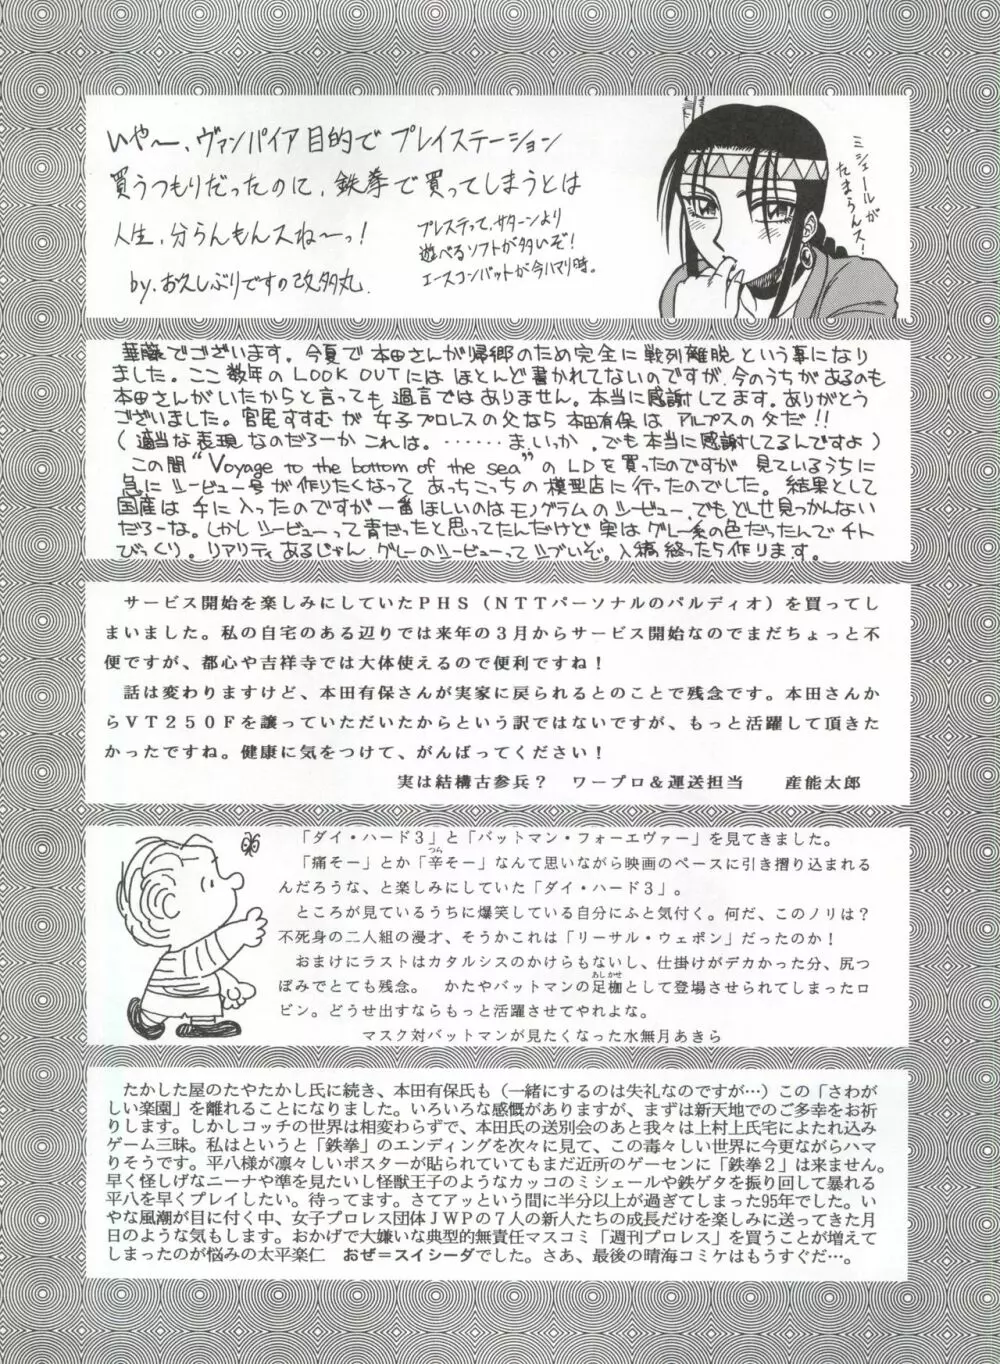 いや〜、ヴァンパイア目的でプレイステーション
買うつもりだったのに、鉄拳で買ってしまうとは
人生、分らんもんスね〜っ!
by.お久しぶりですの改多丸.
プレステって、サターンより
遊べるソフトが多いぞ!
エースコンバットが今ハマり時。
ミシェールが
たまらんス!
華藤でございます。今夏で本田さんが帰郷のため完全に戦列離脱という事になり
ました。ここ数年のLOOK OUTにはほとんど書かれてないのですが、今のうちがあるのも
本田さんがいたからと言っても過言ではありません。本当に感謝してます。ありがとう
ございました。宮尾すすむが女子プロレスの父なら本田有保はアルプスの父だ!!
(適当な表現なのだろーかこれは。……ま、いっか。でも本当に感謝してるんですよ)
この間“Voyage to the bottom of the sea”のLDを買ったのですが見ているうちに
急にシービュー号が作りたくなってあっちこっちの模型店に行ったのでした。結果として
国産は手に入ったのですが一番ほしいのはモノグラムのシービュー、でもどーせ見つかんない
だろーな。しかしシービューって青だったと思ってたんだけど実はグレー系の色だったんでチト
びっくり。リアリティあるじゃん、グレーのシービューってシブいぞ。入稿終ったら作ります。
サービス開始を楽しみにしていたPHS(NTTパーソナルのパルディオ)を買ってし
まいました。私の自宅のある辺りでは来年の3月からサービス開始なのでまだちょっと不
便ですが、都心や吉祥寺では大体使えるので便利ですね!
話は変わりますけど、本田有保さんが実家に戻られるとのことで残念です。本田さんか
らVT250Fを譲っていただいたからという訳ではないですが、もっと活躍して頂きた
かったですね。健康に気をつけて、がんばってください!
実は結構古参兵? ワープロ&運送担当 産能太郎
「ダイ・ハード3」と「バットマン・フォーエヴァー」を見てきました。
「痛そー」とか「辛そー」なんて思いながら映画のペースに引き摺り込まれる
んだろうな、と楽しみにしていた「ダイ・ハード3」。
ところが見ているうちに爆笑している自分にふと気付く。何だ、このノリは?
不死身の二人組の漫才、そうかこれは「リーサル・ウェポン」だったのか!
おまけにラストはカタルシスのかけらもないし、仕掛けがデカかった分、尻つ
ぼみでとても残念。 かたやバットマンの足枷として登場させられてしまったロ
ビン。どうせ出すならもっと活躍させてやれよな。
マスク対バットマンが見たくなった水無月あきら
たかした屋のたやたかし氏に続き、本田有保氏も(一緒にするのは失礼なのですが…)この「さわが
しい楽園」を離れることになりました。いろいろな感慨がありますが、まずは新天地でのご多幸をお祈
りします。しかしコッチの世界は相変わらずで、本田氏の送別会のあと我々は上村上氏宅によたれ込み
ゲーム三昧。私はというと「鉄拳」のエンディングを次々に見て、この毒々しい世界に今更ながらハマ
りそうです。平八様が凛々しいポスターが貼られていてもまだ近所のゲーセンに「鉄拳2」は来ません。
早く怪しげなニーナや準を見たいし怪獣王子のようなカッコのミシェールや鉄ゲタを振り回して暴れる
平八を早くプレイしたい。待ってます。さてアッという間に半分以上が過ぎてしまった95年でした。い
やな風潮が目に付く中、女子プロレス団体JWPの7人の新人たちの成長だけを楽しみに送ってきた月
日のような気もします。おかげで大嫌いな典型的無責任マスコミ「週刊プロレス」を買うことが増えて
しまったのが悩みの太平楽仁 おぜ=スイシーダでした。さあ、最後の晴海コミケはもうすぐだ…。